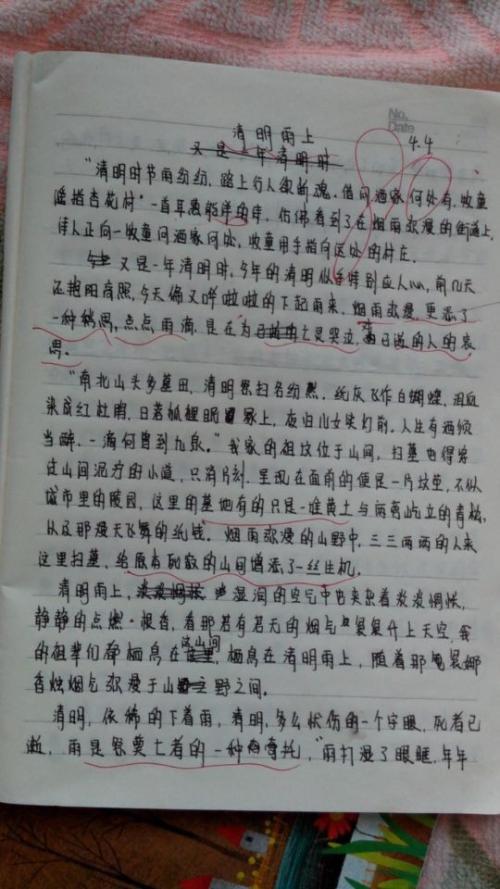 No.
Date
4.4
清明雨上
又是一年清明时
"清明时节雨纷纷,路上行人欲断魂。借问酒家何处有,牧童
遥指杏花村"一首耳熟能详的诗,仿佛看到了在烟雨弥漫的街道上,
诗人正向一牧童问酒家何处,牧童用手指向远处的村庄。
又是一年清明时,今年的清明似乎特别应人心,前几天
还艳阳高照,今天偏又哗啦啦的下起雨来,烟雨弥漫,更添了
一种稠思,点点雨滴,是在为亡灵哭泣,为已逝的人的哀
思。
"南北山头多墓田,清明祭扫各纷然。纸灰飞作白蝴蝶,泪血
染成红杜鹃。日落狐狸眠冢上,夜归儿女笑灯前。人生有酒须
当醉,一滴何曾到九泉。"我家的祖坟位于山间,扫墓也得穿
过山间泥泞的小道,只消片刻,呈现在面前的便是一片坟茔,不似
城市里的陵园,这里的墓地有的只是一堆黄土与两旁屹立的青松,
以及那漫天飞舞的纸钱。烟雨弥漫的山野中,三三两两的人来
这里扫墓,给原有死寂的山间增添了一丝生机。
清明雨上,湿润的空气中也夹杂着淡淡惆怅,
静静的点燃一根香,看那若有若无的烟气袅袅升上天空,我
的祖辈们都栖息在这山间,栖息在清明雨上,随着那袅娜
香烛烟气弥漫于山野之间。
清明,依稀的下着雨,清明,多么忧伤的一个字眼,死者已
逝,雨是祭奠亡者的一种寄托,"雨打湿了眼眶,年年